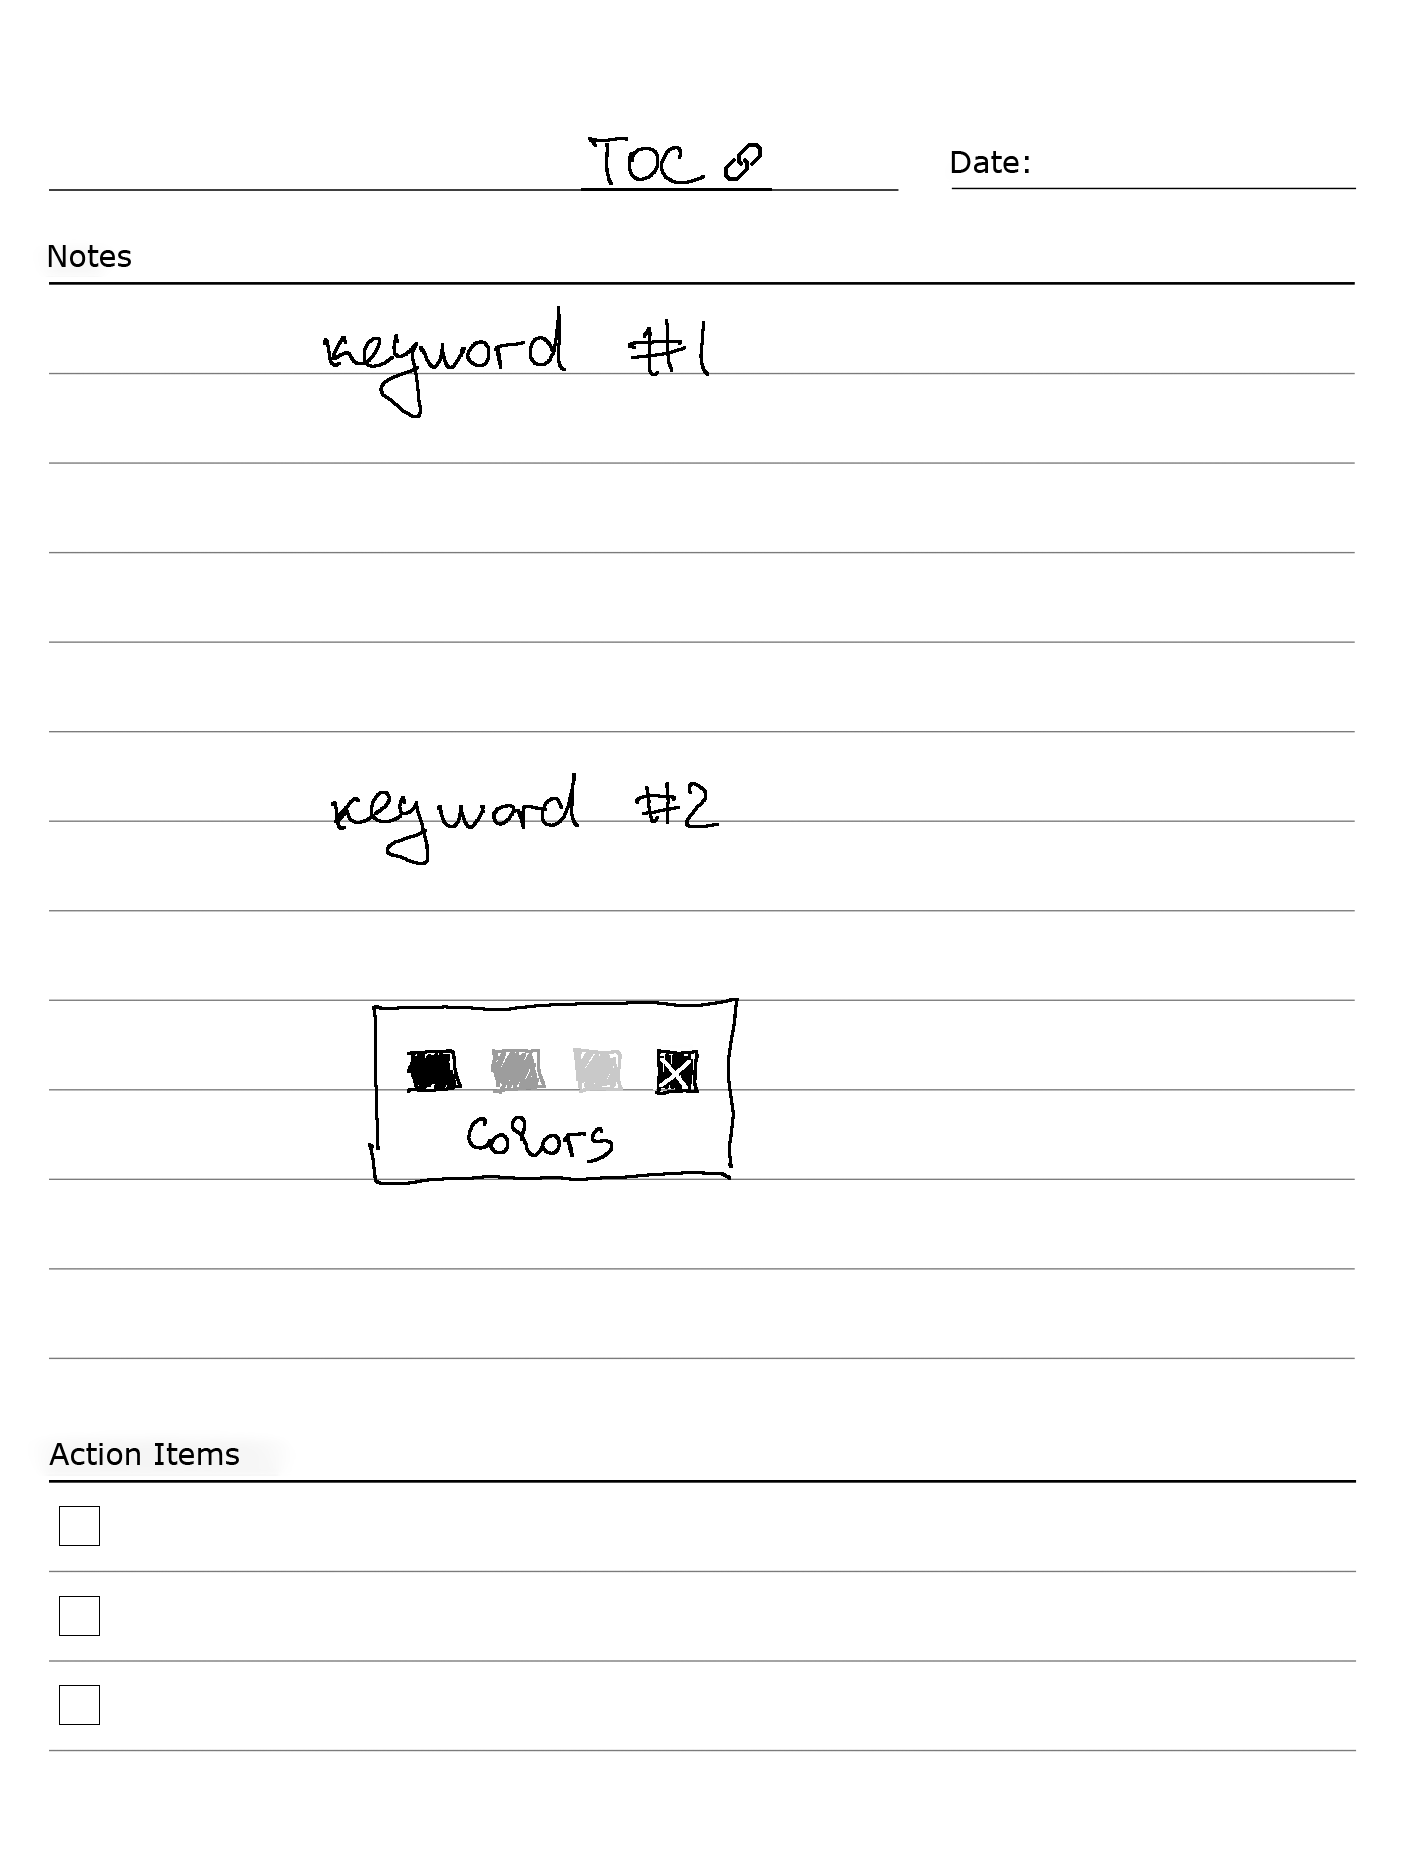 TOC
Date:
Notes
keyword #1
keyword #2
Colors
Action Items